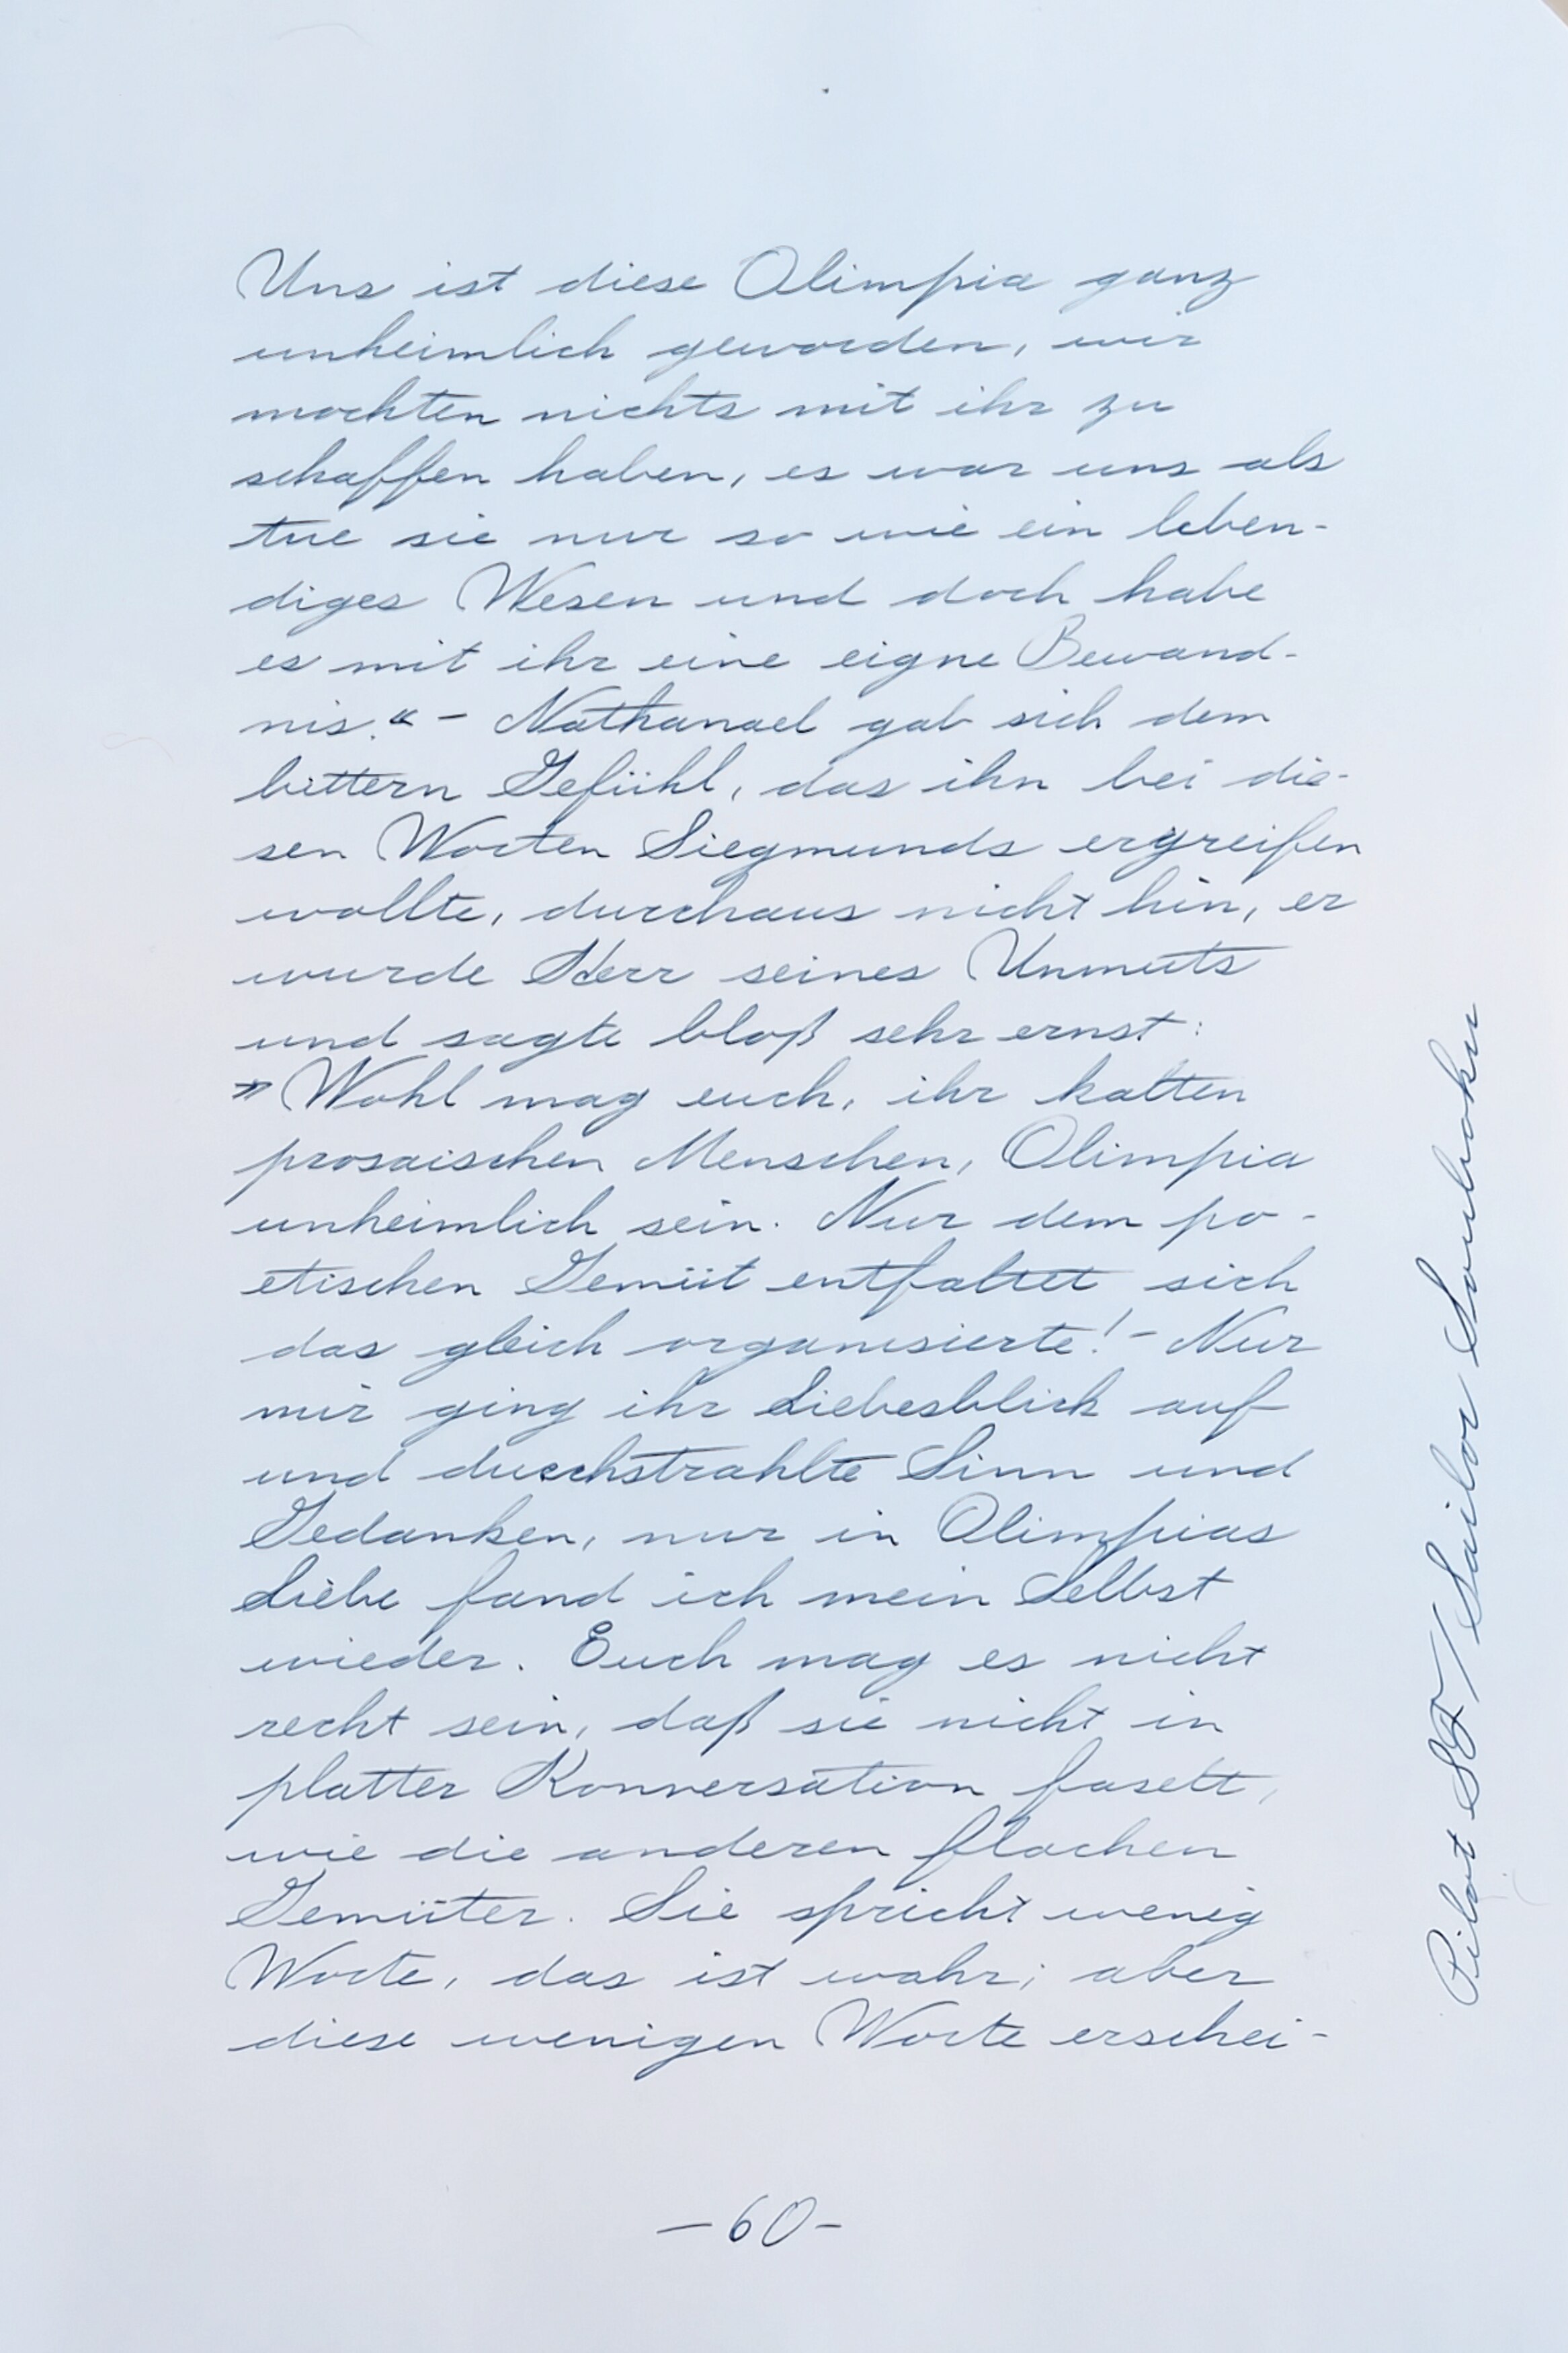 Uns ist diese Olimpia ganz
unheimlich geworden, wir
mochten nichts mit ihr zu
schaffen haben, es war uns als
tue sie nur so wie ein leben-
diges Wesen und doch habe
es mit ihr eine eigne Bewand-
nis.“ – Nathanael gab sich dem
bittern Gefühl, das ihn bei die-
sen Worten Siegmunds ergreifen
wollte, durchaus nicht hin, er
wurde Herr seines Unmuts
und sagte bloß sehr ernst:
»Wohl mag euch, ihr kalten
prosaischen Menschen, Olimpia
unheimlich sein. Nur dem po-
etischen Gemüt entfaltet sich
das gleich organisierte! – Nur
mir ging ihr Liebesblick auf
und durchstrahlte Sinn und
Gedanken, nur in Olimpias
Liebe fand ich mein Selbst
wieder. Euch mag es nicht
recht sein, daß sie nicht in
platter Konversation faselt,
wie die anderen flachen
Gemüter. Sie spricht wenig
Worte, das ist wahr; aber
diese wenigen Worte erschei-
– 60 –
Pilot 88 / Sailor Souboku